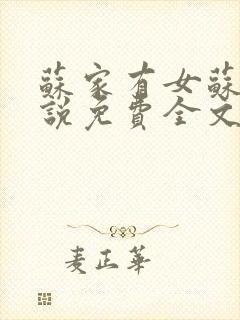 蘇家有女蘇
說免費全文
麦正華